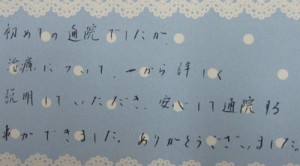 初めての通院でしたが、
治療について、一から詳しく
説明していただき、安心して通院する
事ができました。ありがとうございました。